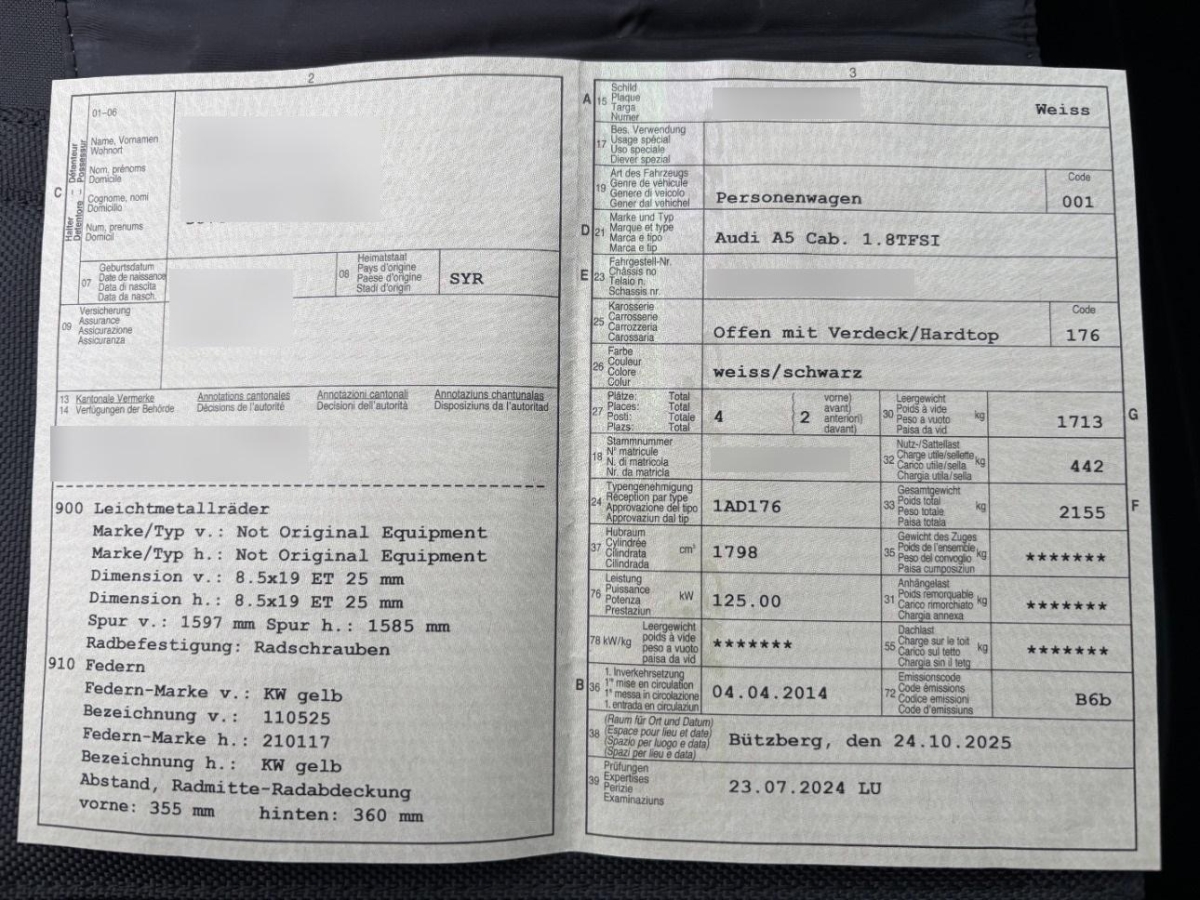 2
01-06
Name, Vornamen
Wohnort
Nom, prénoms
Domicile
Cognome, nomi
Domicilio
Num, prenums
Domicil
C
Halter – Détenteur
Detentore – Possessur
07
Geburtsdatum
Date de naissance
Data di nascita
Data da nasch.
08
Heimatstaat
Pays d'origine
Paese d'origine
Stadi d'origin
SYR
09
Versicherung
Assurance
Assicurazione
Assicuranza
13 Kantonale Vermerke Annotations cantonales Annotazioni cantonali Annotaziuns chantunalas
14 Verfügungen der Behörde Décisions de l'autorité Decisioni dell'autorità Disposiziuns da l'autoritad
900 Leichtmetallräder
Marke/Typ v.: Not Original Equipment
Marke/Typ h.: Not Original Equipment
Dimension v.: 8.5x19 ET 25 mm
Dimension h.: 8.5x19 ET 25 mm
Spur v.: 1597 mm Spur h.: 1585 mm
Radbefestigung: Radschrauben
910 Federn
Federn-Marke v.: KW gelb
Bezeichnung v.: 110525
Federn-Marke h.: 210117
Bezeichnung h.: KW gelb
Abstand, Radmitte-Radabdeckung
vorne: 355 mm hinten: 360 mm
3
A 15
Schild
Plaque
Targa
Numer
Weiss
17
Bes. Verwendung
Usage spécial
Uso speciale
Diever spezial
19
Art des Fahrzeugs
Genre de véhicule
Genere di veicolo
Gener dal vehichel
Personenwagen
Code
001
D 21
Marke und Typ
Marque et type
Marca e tipo
Marca e tip
Audi A5 Cab. 1.8TFSI
E 23
Fahrgestell-Nr.
Châssis no
Telaio n.
Schassis nr.
25
Karosserie
Carrosserie
Carrozzeria
Carossaria
Offen mit Verdeck/Hardtop
Code
176
26
Farbe
Couleur
Colore
Colur
weiss/schwarz
27
Plätze: Total
Places: Total
Posti: Totale
Plazs: Total
4
2
vorne)
avant)
anteriori)
davant)
30
Leergewicht
Poids à vide
Peso a vuoto
Paisa da vid
kg
1713
G
18
Stammnummer
N° matricule
N. di matricola
Nr. da matricla
32
Nutz-/Sattellast
Charge utile/sellette
Carico utile/sella
Chargia utila/sella
kg
442
24
Typengenehmigung
Réception par type
Approvazione del tipo
Approvaziun dal tip
1AD176
33
Gesamtgewicht
Poids total
Peso totale
Paisa totala
kg
2155
F
37
Hubraum
Cylindrée
Cilindrata
Cilindrada
cm³
1798
35
Gewicht des Zuges
Poids de l'ensemble
Peso del convoglio
Paisa cumposiziun
kg
*******
76
Leistung
Puissance
Potenza
Prestaziun
kW
125.00
31
Anhängelast
Poids remorquable
Carico rimorchiato
Chargia annexa
kg
*******
78 kW/kg
Leergewicht
poids à vide
peso a vuoto
paisa da vid
*******
55
Dachlast
Charge sur le toit
Carico sul tetto
Chargia sin il tetg
kg
*******
B 36
1. Inverkehrsetzung
1re mise en circulation
1a messa in circolazione
1. entrada en circulaziun
04.04.2014
72
Emissionscode
Code émissions
Codice emissioni
Code d'emissiuns
B6b
38
(Raum für Ort und Datum)
(Espace pour lieu et date)
(Spazio per luogo e data)
(Spazi per lieu e data)
Bützberg, den 24.10.2025
39
Prüfungen
Expertises
Perizie
Examinaziuns
23.07.2024 LU